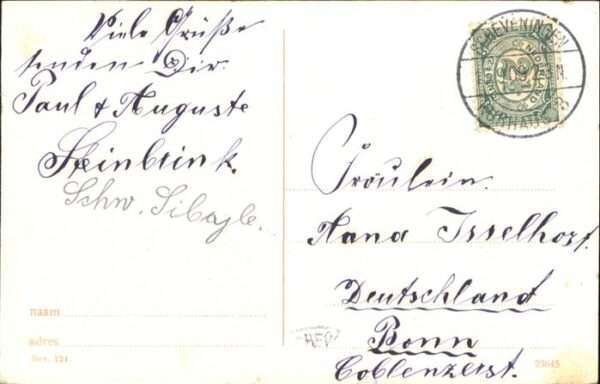 Viele Grüße
senden Dir.
Paul & Auguste
Steinbrink.
Schw.
naam
adres
Ser. 121.
SCHEVENINGEN
KURHAUS
NEDERLAND
Fräulein.
Nana Isselhorst.
Deutschland
Bonn
Coblenzerst.
23645